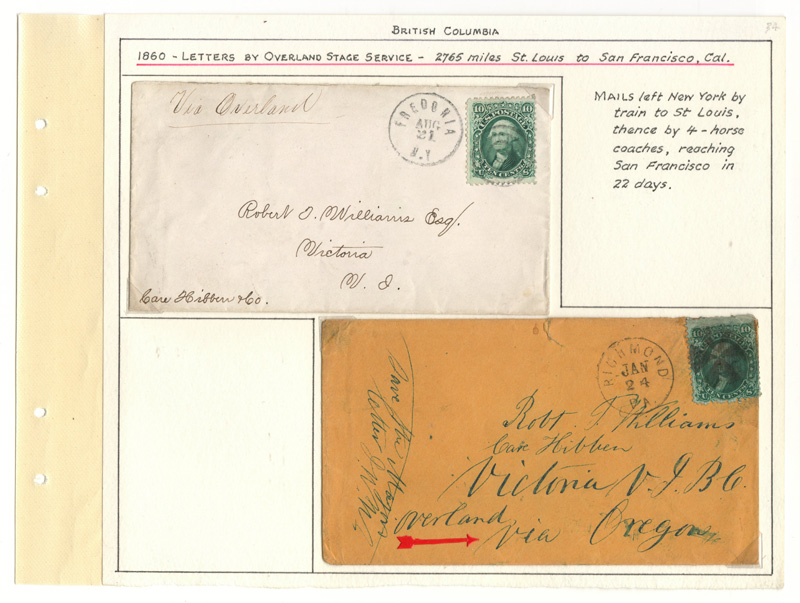 BRITISH COLUMBIA
1860 - LETTERS BY OVERLAND STAGE SERVICE - 2765 miles St. Louis to San Francisco, Cal.
MAILS left New York by
train to St Louis,
thence by 4-horse
coaches, reaching
San Francisco in
22 days.
Via Overland
FREDONIA
AUG
21
N.Y
10 10
U.S. POSTAGE
TEN CENTS
Robert I. Williams Esq.
Victoria
V. I.
Care Hibben & Co.
RICHMOND
JAN
24
10
Robt T. Williams
Care Hibben
Victoria V.I B C.
overland
via Oregon
Save the
letter